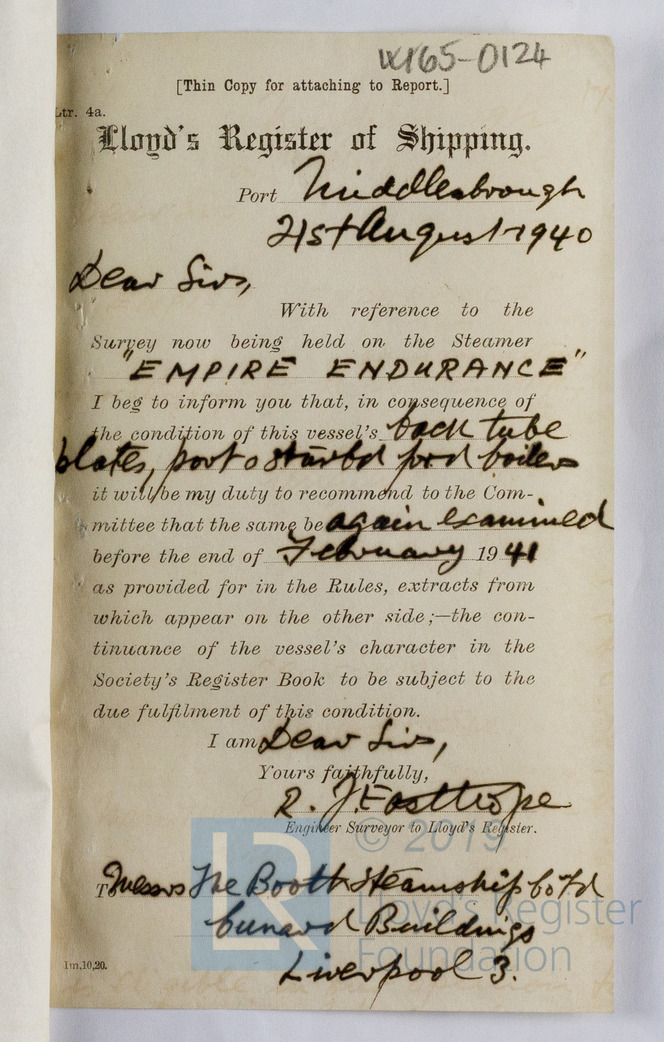 W165-0124
[Thin Copy for attaching to Report.]
Ltr. 4a.
Lloyd's Register of Shipping.
Port Middlesbrough
21st August 1940
Dear Sirs,
With reference to the
Survey now being held on the Steamer
"EMPIRE ENDURANCE"
I beg to inform you that, in consequence of
the condition of this vessel's back tube
plates, port & starbd ford boilers
it will be my duty to recommend to the Com-
mittee that the same be again examined
before the end of February 1941
as provided for in the Rules, extracts from
which appear on the other side;—the con-
tinuance of the vessel's character in the
Society's Register Book to be subject to the
due fulfilment of this condition.
I am Dear Sirs,
Yours faithfully,
R. J. Easthope
Engineer Surveyor to Lloyd's Register.
© 2019
To Messrs The Booth Steamship Co Ltd
Lloyd's Register
Cunard Buildings
Foundation
Liverpool 3.
1m,10,20.
LR